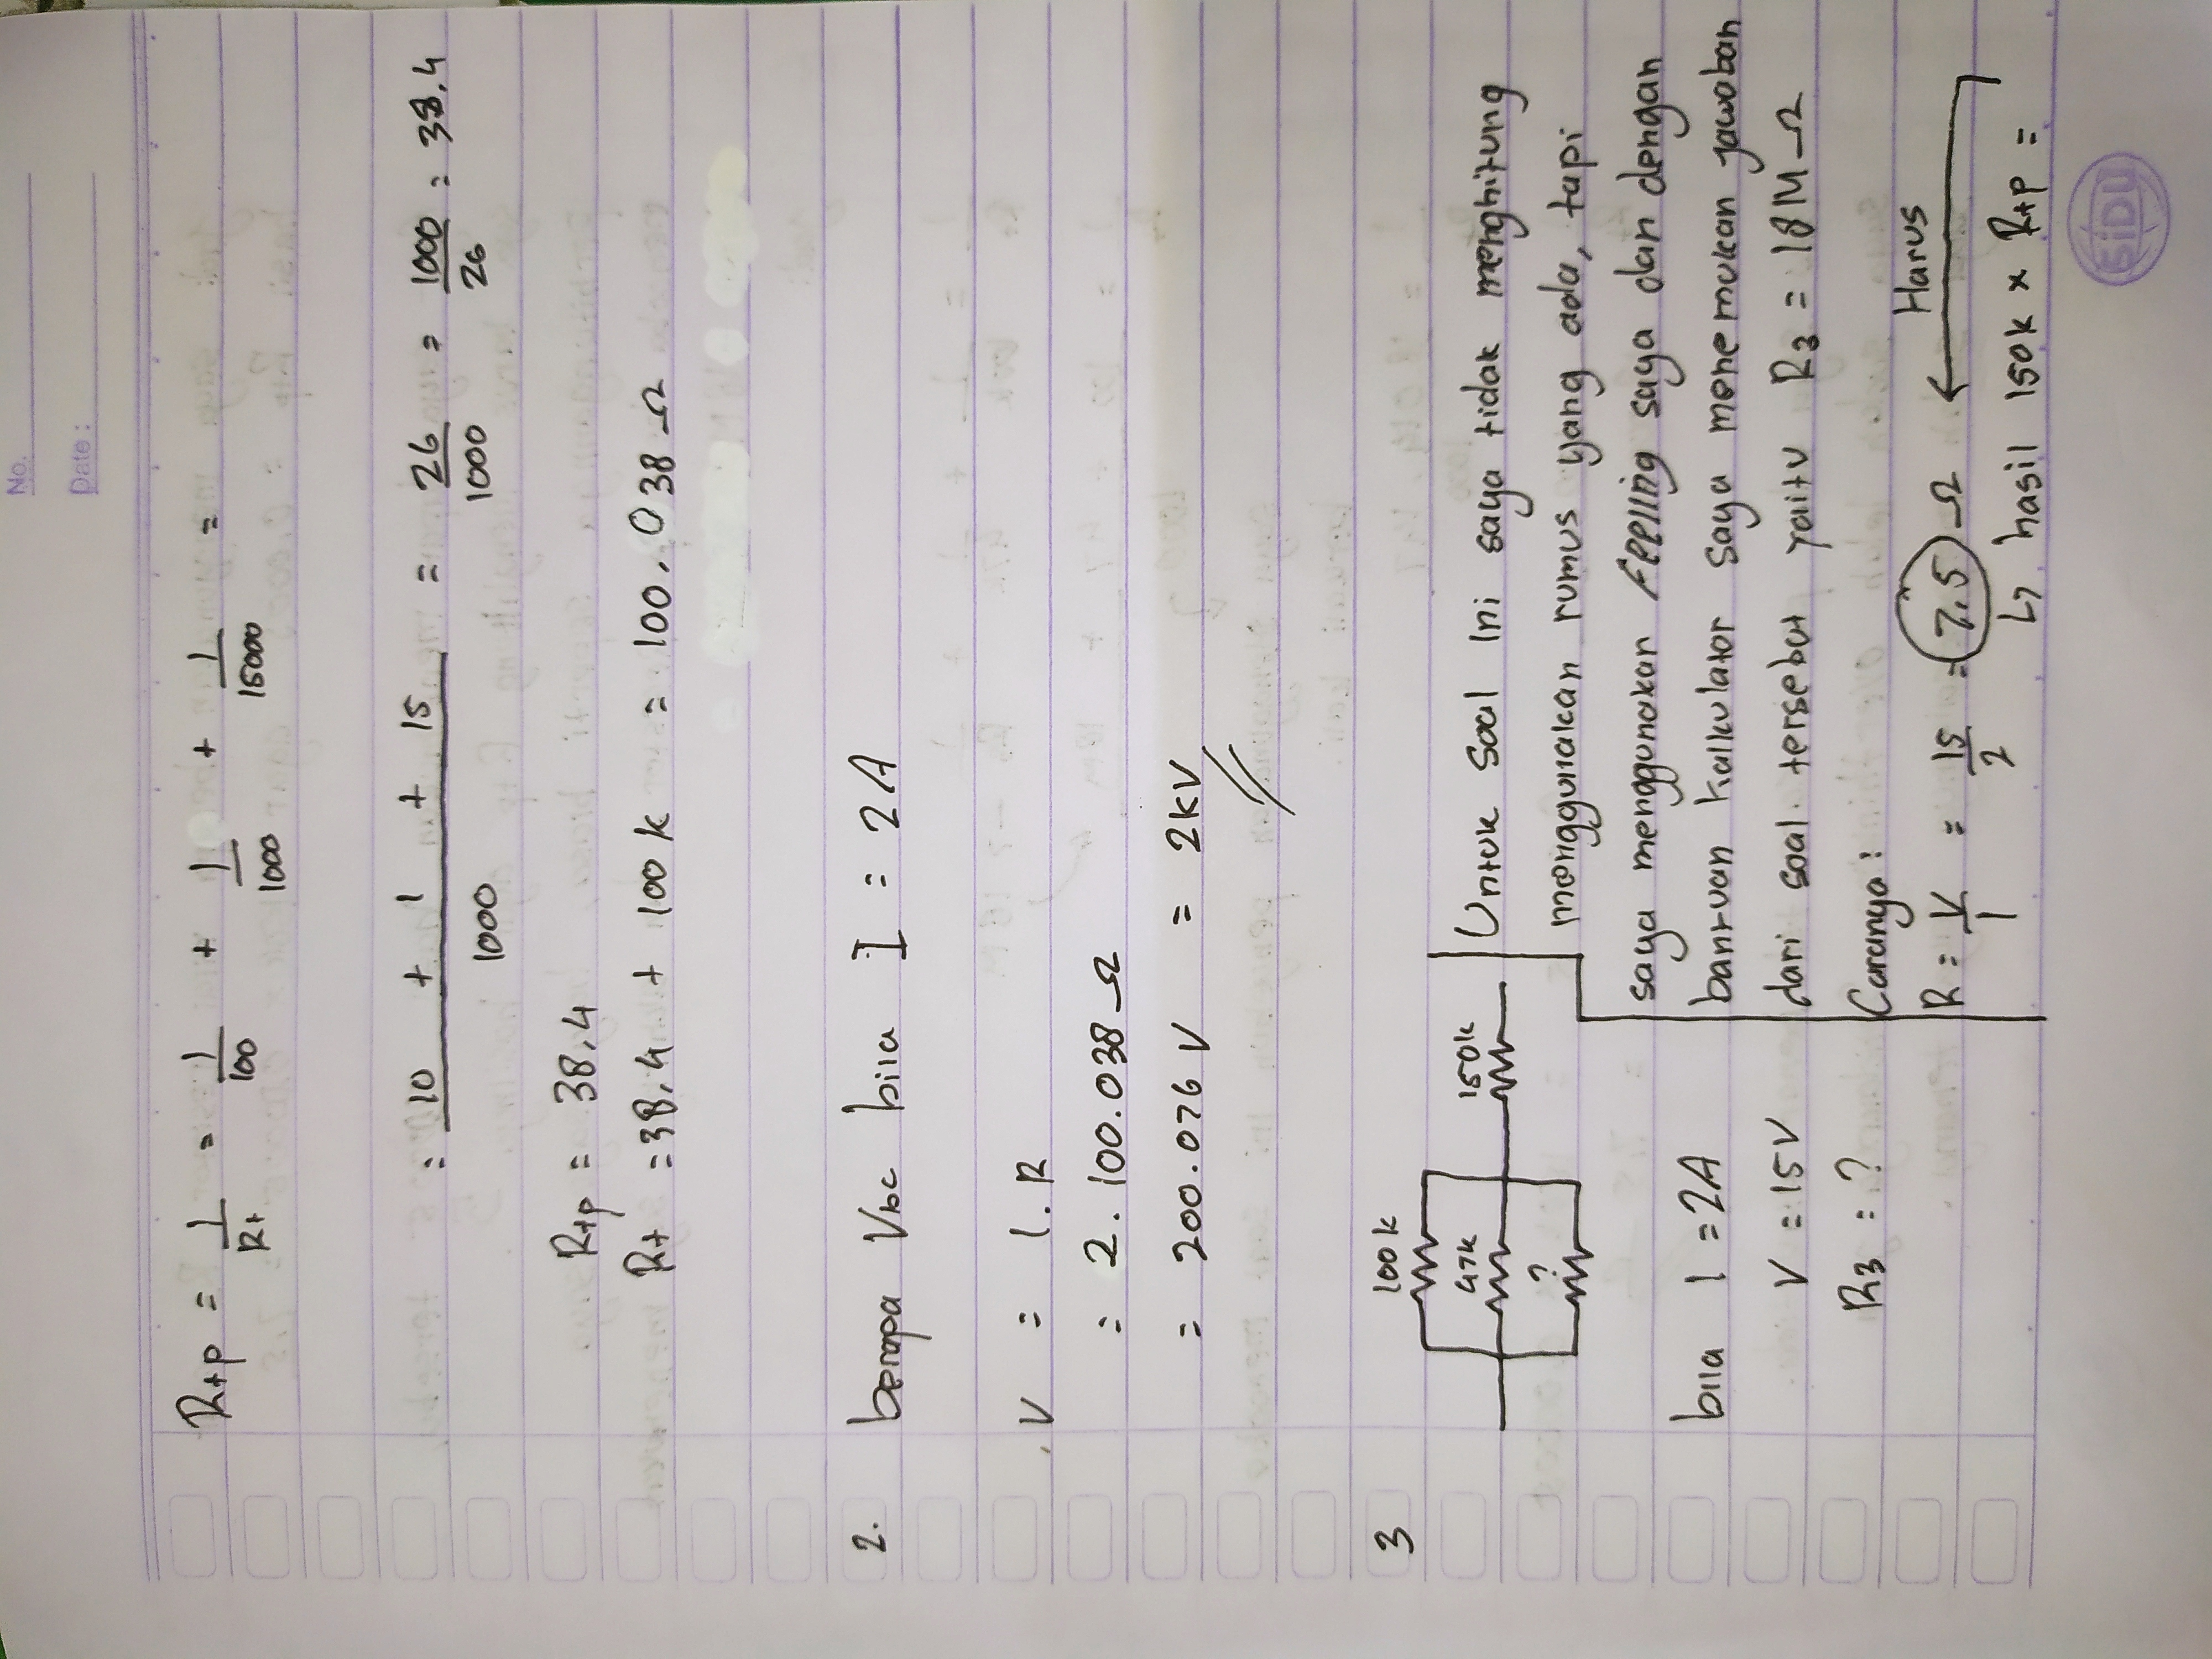 No.
Date :
Rtp = 1/Rt = 1/100 + 1/1000 + 1/15000 =
= 10 + 1 + 15 / 1000 = 26/1000 = 1000/26 = 38,4
Rtp = 38,4
Rt = 38,4 + 100 k = 100.038 Ω
2. berapa Vbc bila I = 2A
V = I.R
= 2.100.038 Ω
= 200.076 V = 2KV
3
100k
47k
?
150k
bila I = 2A
V = 15V
R3 : ?
Untuk soal ini saya tidak menghitung
menggunakan rumus yang ada, tapi
saya menggunakan Feeling saya dan dengan
bantuan kalkulator saya menemukan jawaban
dari soal tersebut yaitu R3 = 18M Ω
Caranya :
R = V/I = 15/2 = 7,5 Ω
Harus
↳ hasil 150k x Rtp =
SiDU